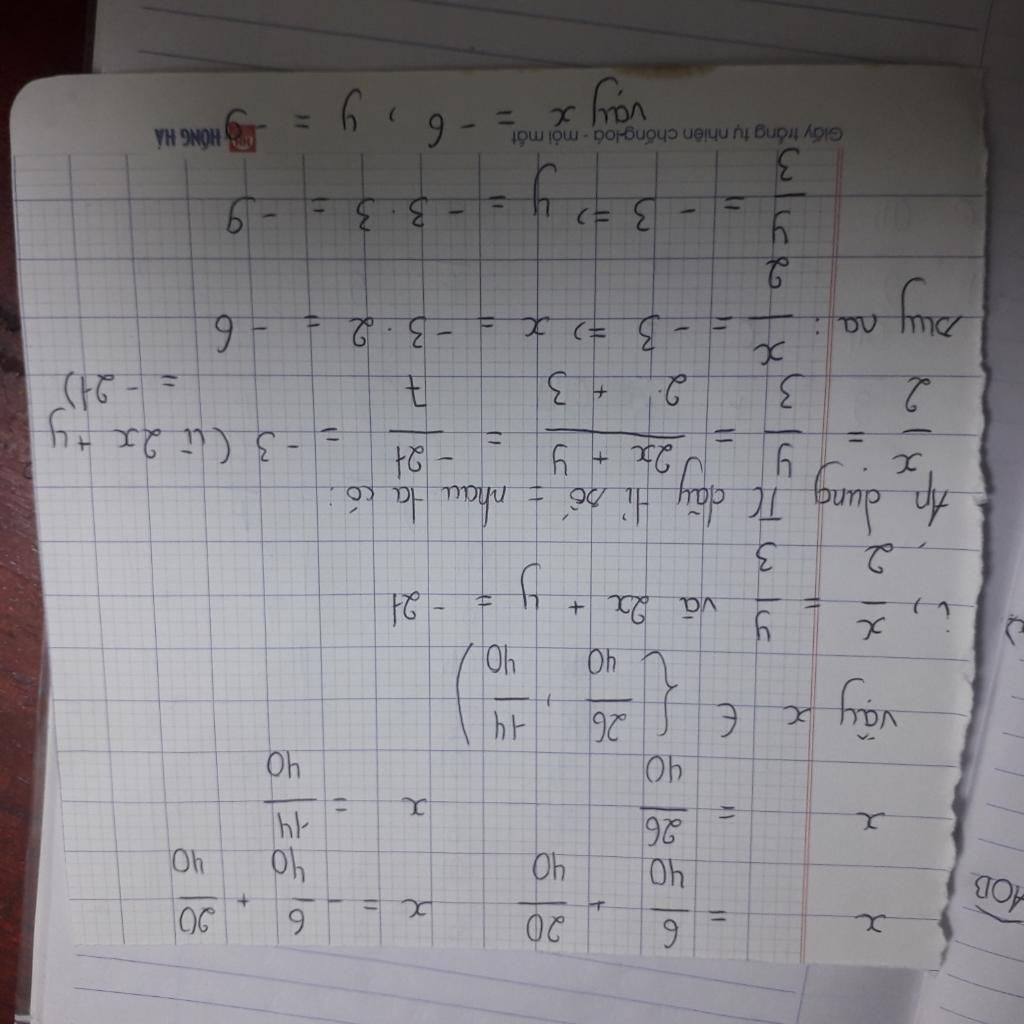 x = 6/40 + 20/40 x = - 6/40 + 20/40
x = 26/40 x = 14/40
vậy x ∈ { 26/40 , 14/40 )
i, x/2 = y/3 và 2x + y = - 21
Áp dụng TC dãy tỉ số = nhau ta có:
x/2 = y/3 = 2x + y/2.2 + 3 = - 21/7 = - 3 (vì 2x + y
= - 21)
suy ra: x/2 = - 3 => x = - 3 . 2 = - 6
y/3 = - 3 => y = - 3 . 3 = - 9
vậy x = - 6 , y = - 9
Giấy trắng tự nhiên chống loá - mỏi mắt HỒNG HÀ
AOB